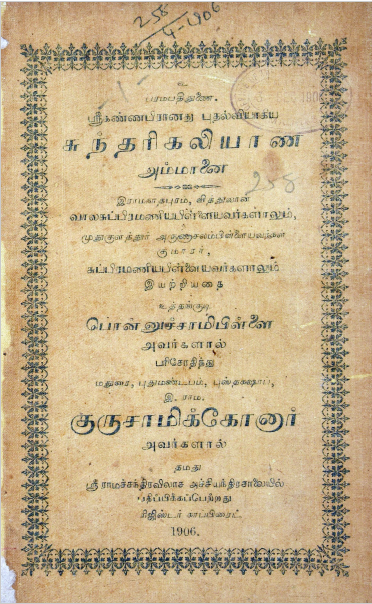 258
4-906
உ
பரமபத்துணை.
ஸ்ரீகண்ணபிரானது புதல்வியாகிய
சுந்தரிகலியாண
அம்மானை
258
இராமனாதபுரம், வித்துவான்
வாலசுப்பிரமணியபிள்ளையவர்களாலும்,
முதுகுளத்தூர் அருணாசலம்பிள்ளையவர்கள்
குமாரர்,
சுப்பிரமணியபிள்ளையவர்களாலும்
இயற்றியதை
உத்தங்குடி
பொன்னுச்சாமிபிள்ளை
அவர்களால்
பரிசோதித்து
மதுரை, புதுமண்டபம், புஸ்தகஷாப்,
இ. ராம.
குருசாமிக்கோனார்
அவர்களால்
தமது
ஸ்ரீ ராமச்சந்திரவிலாச அச்சியந்திரசாலையில்
பதிப்பிக்கப்பெற்றது
ரிஜிஸ்டர் காப்பிரைட்.
1906.